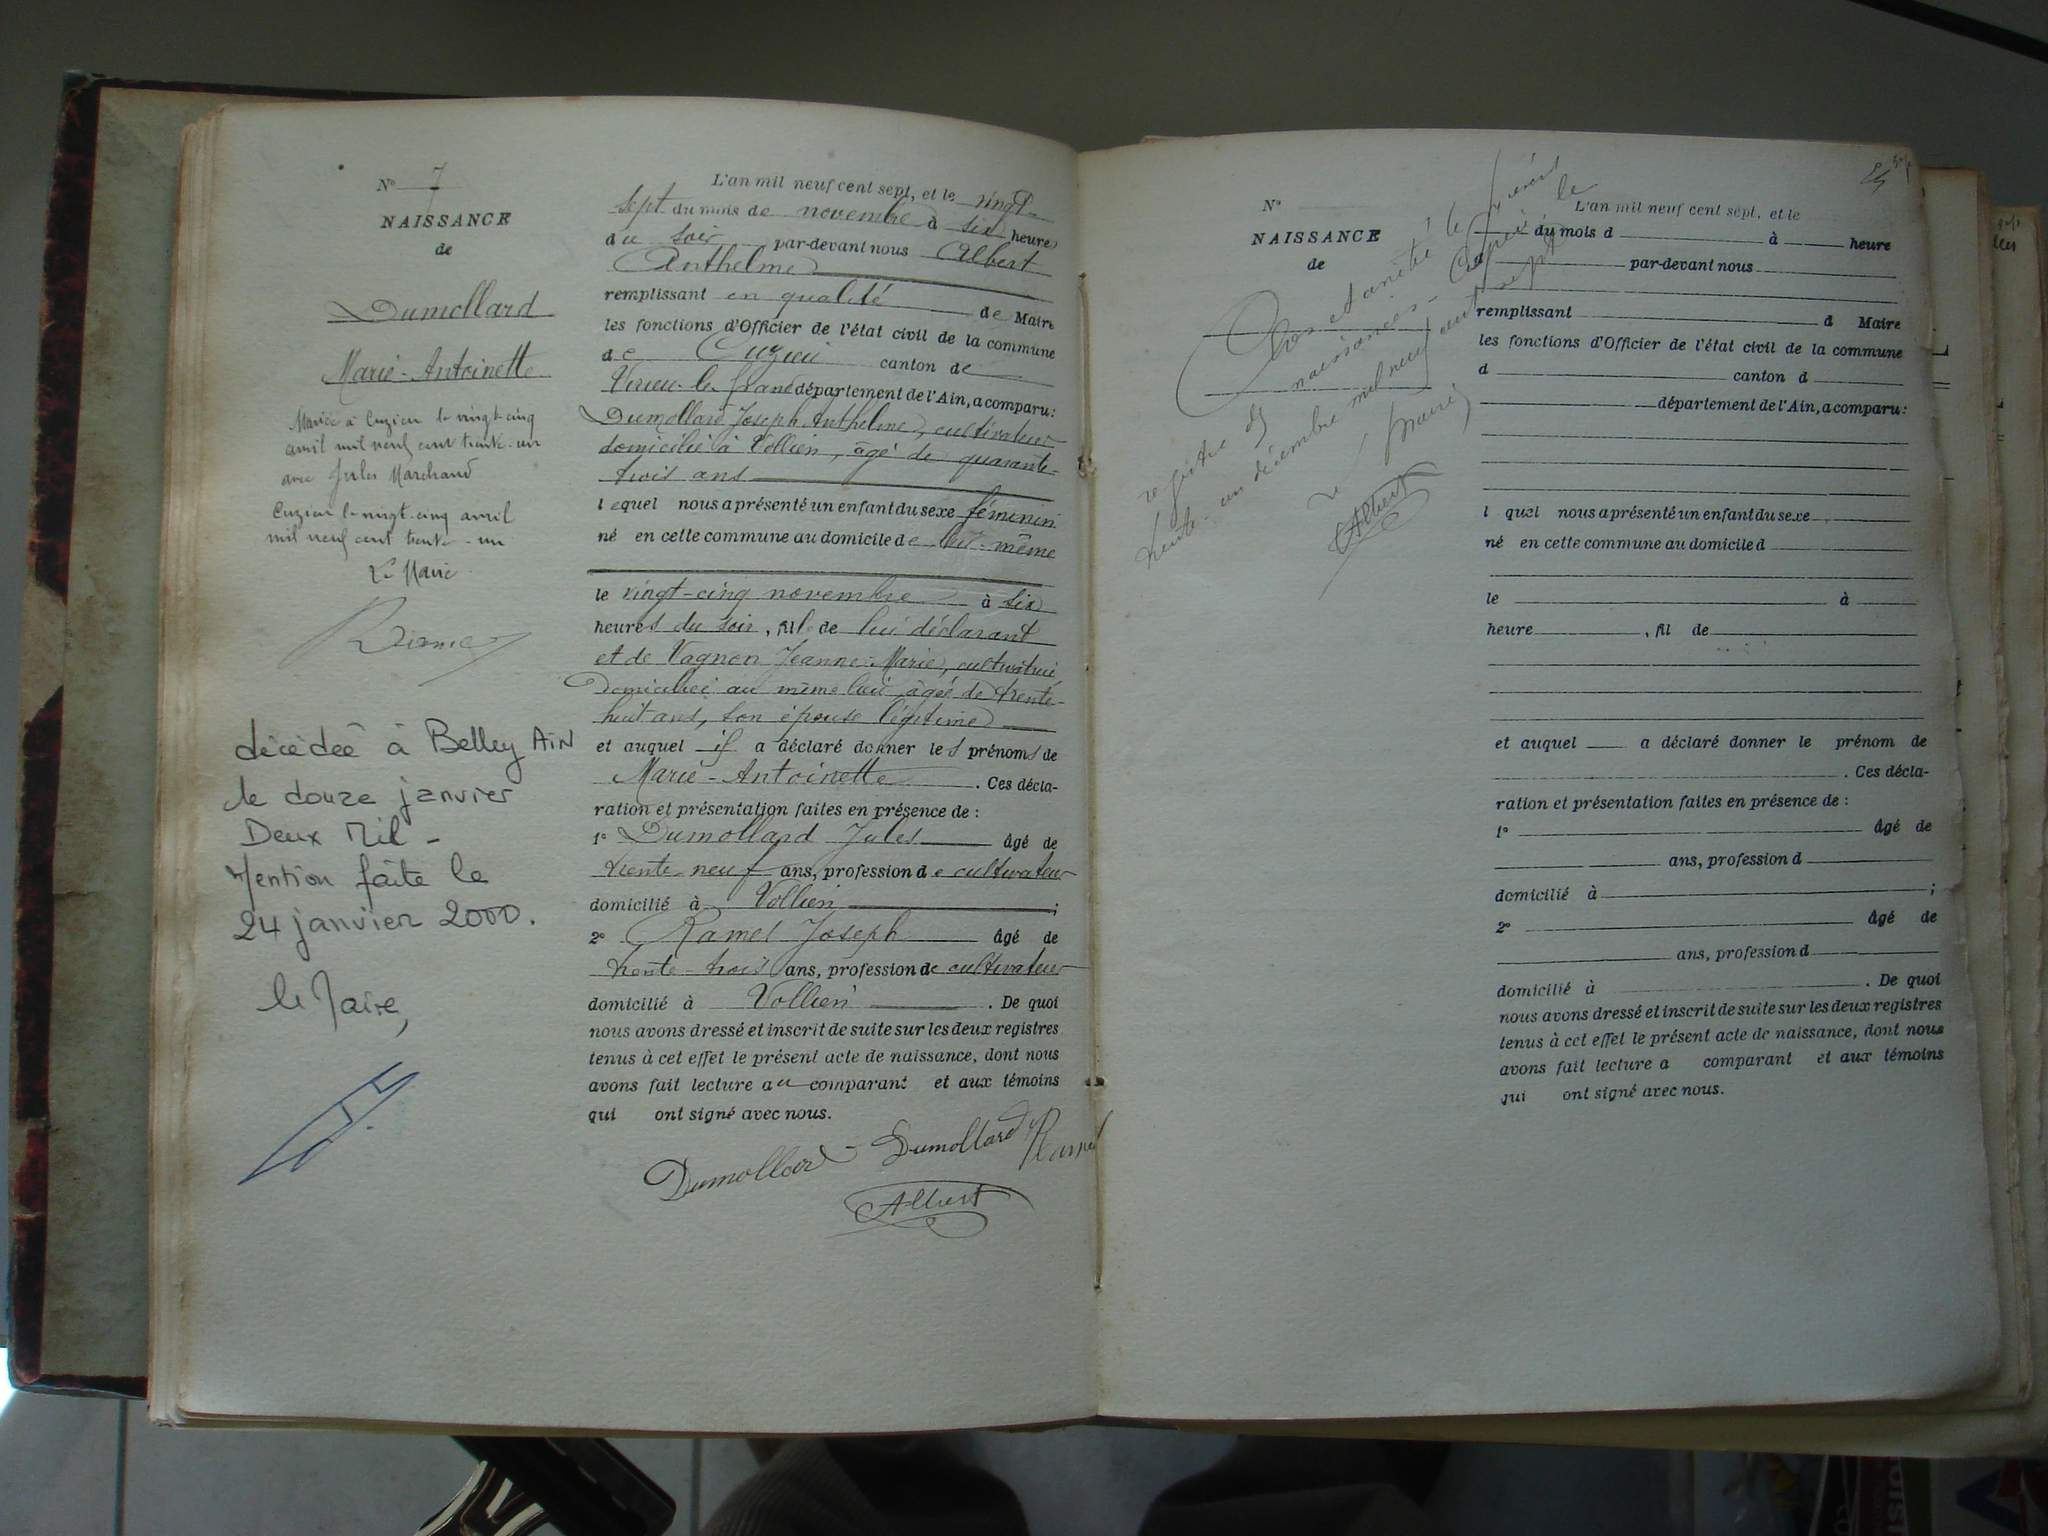 N° 7
NAISSANCE
de
Dumollard
Marie-Antoinette
Mariée à Cuzieu le vingt-cinq
avril mil neuf cent trente-un
avec Jules Marchand
Cuzieu le vingt-cinq avril
mil neuf cent trente-un
Le Maire
décédée à Belley Ain
le douze janvier
Deux Mil -
Mention faite le
24 janvier 2000.
le Maire,
L'an mil neuf cent sept, et le vingt-
sept du mois de novembre à six heures
du soir par-devant nous Albert
Anthelme
remplissant en qualité de Maire
les fonctions d'Officier de l'état civil de la commune
de Cuzieu canton de
Virieu-le-Grand département de l'Ain, a comparu:
Dumollard Joseph Anthelme, cultivateur
domicilié à Vollien, âgé de quarante-
trois ans
lequel nous a présenté un enfant du sexe féminin
né en cette commune au domicile de lui-même
le vingt-cinq novembre à six
heures du soir, fil de lui déclarant
et de Vagnon Jeanne-Marie, cultivatrice
domiciliée au même lieu, âgée de trente-
huit ans, son épouse légitime
et auquel il a déclaré donner les prénoms de
Marie-Antoinette. Ces décla-
ration et présentation faites en présence de :
1° Dumollard Jules âgé de
trente-neuf ans, profession de cultivateur
domicilié à Vollien ;
2° Ramel Joseph âgé de
trente-trois ans, profession de cultivateur
domicilié à Vollien. De quoi
nous avons dressé et inscrit de suite sur les deux registres
tenus à cet effet le présent acte de naissance, dont nous
avons fait lecture au comparant et aux témoins
qui ont signé avec nous.
Dumollard - Dumollard Ramel
Albert
N°
NAISSANCE
de
Clos et arrêté le présent
registre des naissances le
trente-un décembre mil neuf cent sept
Le Maire
Albert
L'an mil neuf cent sept, et le
du mois d à heure
par-devant nous
remplissant d Maire
les fonctions d'Officier de l'état civil de la commune
d canton d
département de l'Ain, a comparu:
l quel nous a présenté un enfant du sexe
né en cette commune au domicile d
le à
heure , fil de
et auquel a déclaré donner le prénom de
. Ces décla-
ration et présentation faites en présence de :
1° âgé de
ans, profession d
domicilié à ;
2° âgé de
ans, profession d
domicilié à . De quoi
nous avons dressé et inscrit de suite sur les deux registres
tenus à cet effet le présent acte de naissance, dont nous
avons fait lecture a comparant et aux témoins
qui ont signé avec nous.